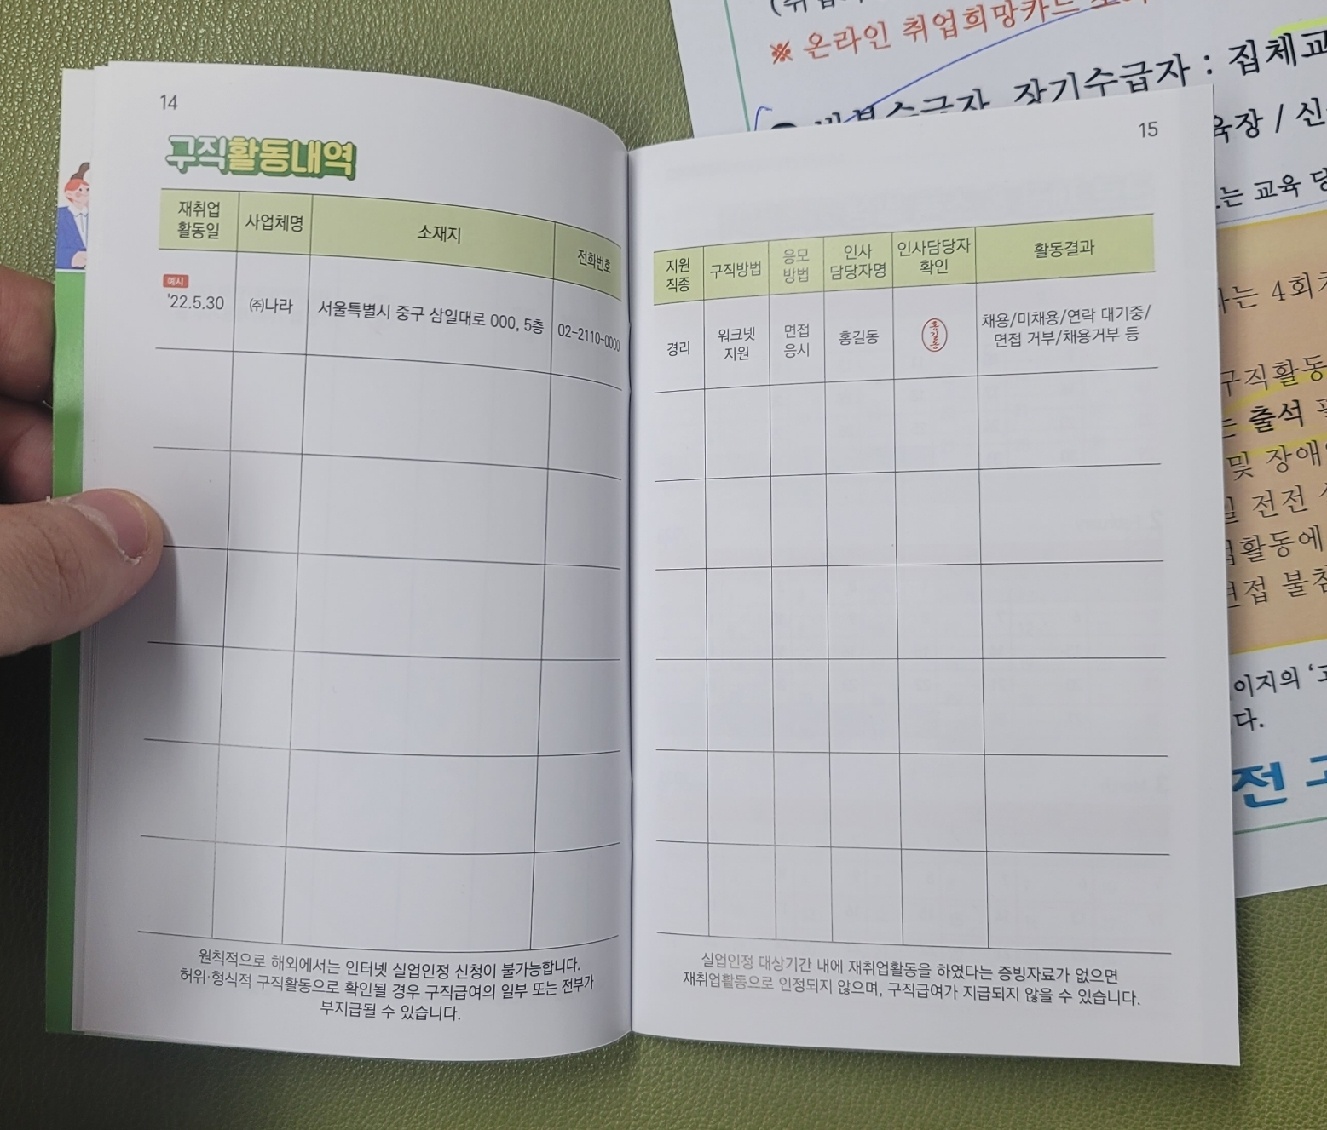 14
구직활동내역
재취업
활동일
사업체명
소재지
전화번호
예시
'22.5.30
㈜나라
서울특별시 중구 삼일대로 000, 5층
02-2110-0000
원칙적으로 해외에서는 인터넷 실업인정 신청이 불가능합니다.
허위·형식적 구직활동으로 확인될 경우 구직급여의 일부 또는 전부가
부지급될 수 있습니다.
15
지원
직종
구직방법
응모
방법
인사
담당자명
인사담당자
확인
활동결과
경리
워크넷
지원
면접
응시
홍길동
홍길동
채용/미채용/연락 대기중/
면접 거부/채용거부 등
실업인정 대상기간 내에 재취업활동을 하였다는 증빙자료가 없으면
재취업활동으로 인정되지 않으며, 구직급여가 지급되지 않을 수 있습니다.
※ 온라인 취업희망카드
장기수급자 : 집체교
육장 / 신
는 교육
는 4회차
구직활동
출석
및 장애
전전
활동에
면접 불참
이지의
다.
전